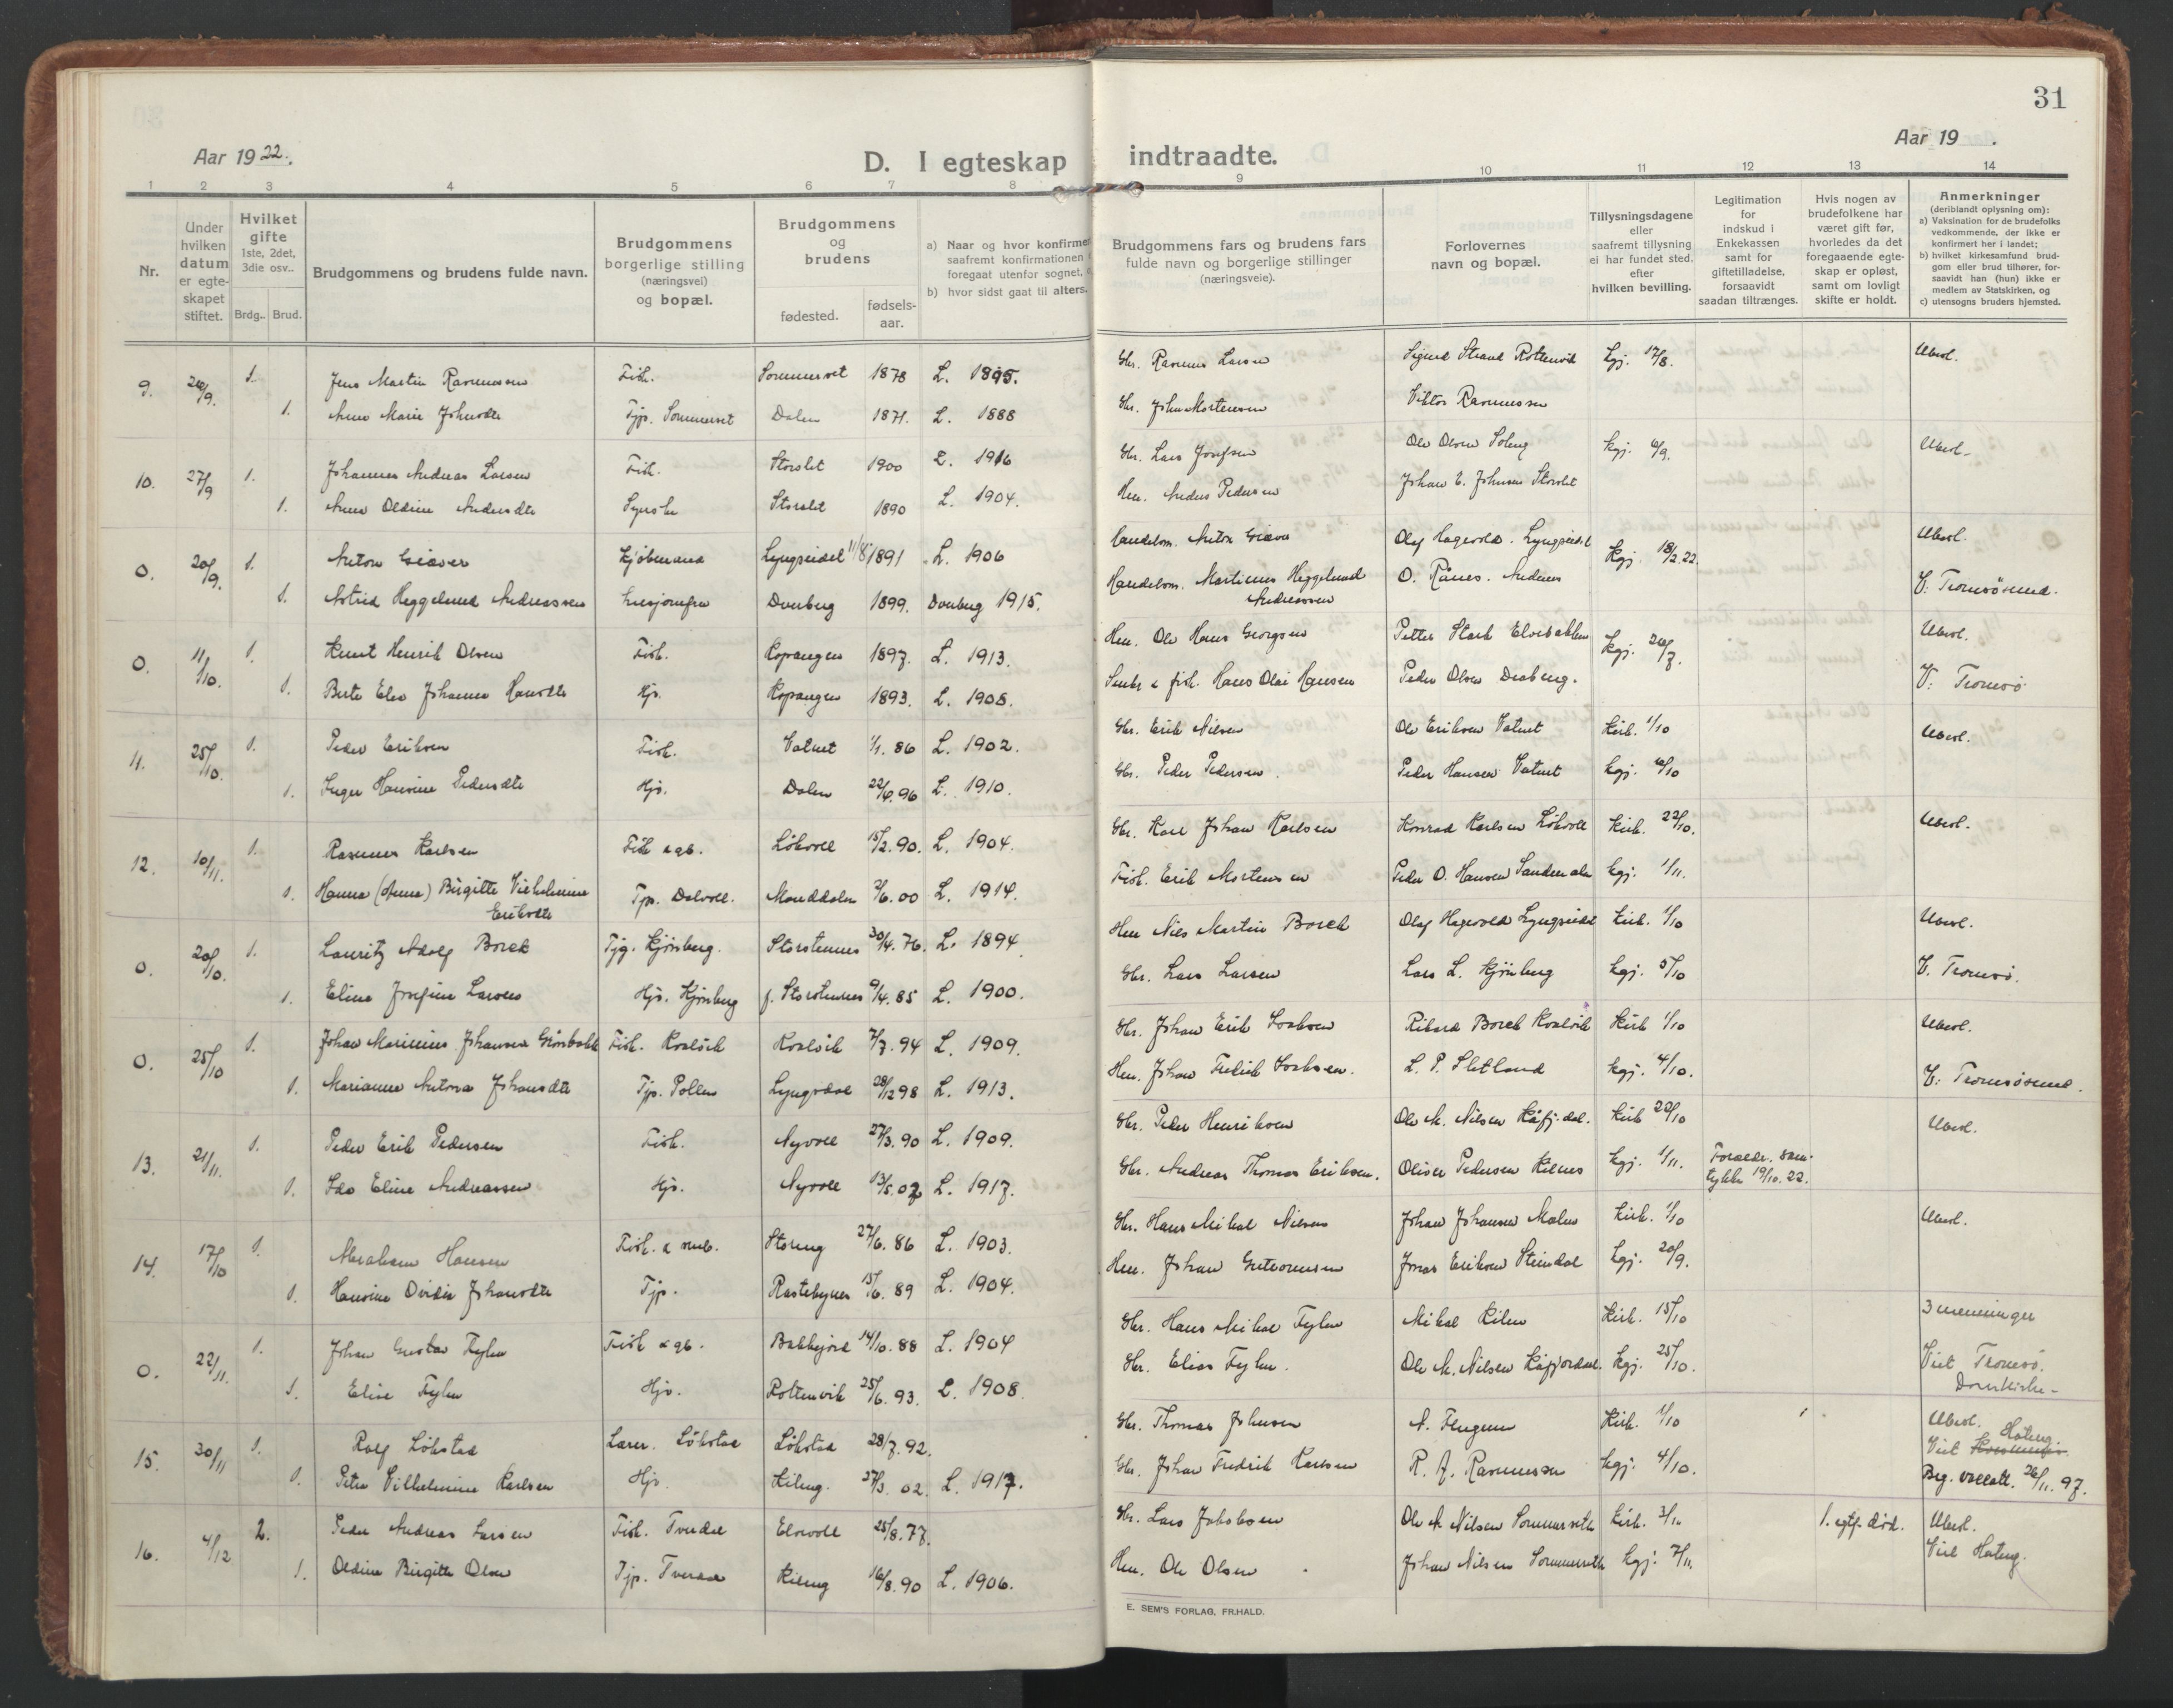 31
Aar 1922.
D. I egteskap indtraadte.
Aar 19 .
1 2 3 4 5 6 7 8 9 10 11 12 13 14
Nr.
Under hvilken datum er egte-skapet stiftet.
Hvilket gifte 1ste, 2det, 3die osv..
Brdg.. Brud.
Brudgommens og brudens fulde navn.
Brudgommens borgerlige stilling (næringsvei) og bopæl.
Brudgommens og brudens
fødested.
fødsels-aar.
a) Naar og hvor konfirmer
saafremt konfirmationen
foregaat utenfor sognet,
b) hvor sidst gaat til alters.
Brudgommens fars og brudens fars fulde navn og borgerlige stillinger (næringsveie).
Forlovernes navn og bopæl.
Tillysningsdagene eller saafremt tillysning ei har fundet sted, efter hvilken bevilling.
Legitimation for indskud i Enkekassen samt for giftetilladelse, forsaavidt saadan tiltrænges.
Hvis nogen av brudefolkene har været gift før, hvorledes da det foregaaende egte-skap er opløst, samt om lovligt skifte er holdt.
Anmerkninger
(deriblandt oplysning om):
a) Vaksination for de brudefolks vedkommende, der ikke er konfirmert her i landet;
b) hvilket kirkesamfund brud-gom eller brud tilhører, for-saavidt han (hun) ikke er medlem av Statskirken, og
c) utensogns bruders hjemsted.
9. 1. Jens Martin Rasmussen Fisk. Sommerset 1878 L. 1895. Gbr. Rasmus Larsen Sigurd Strand Rottenvik kgj. 17/8. Ubesl.
1. Anna Marie Johnsdtr Tjp. Sommerset Dalen 1871. L. 1888 Gbr. John Mortensen Viktor Rasmussen
10. 27/9 1. Johannes Andreas Larsen Fisk. Storslet 1900 L. 1916 Gbr. Lars Josefsen Ole Olsen Soleng kgj. 6/9. Ubesl.
1. Anna Oldine Andersdtr Syerske Storslet 1890 L. 1904. Hm. Anders Pedersen Johan E. Johnsen Storslet
0. 20/9. 1. Anton Giæver Kjøbmand Lyngseidet 11/8 1891 L. 1906 Handelsm. Anton Giæver Olaf Hagerold. Lyngseidet kgj. 18/2.22. Ubesl.
1. Astrid Heggelund Andreassen Dverberg 1899. Dverberg 1915. Handelsm. Martinus Heggelund Andreassen O. Rånes. Andenes V: Tromsøsund.
0. 11/10. 1. Knut Henrik Olsen Fisk. Kopangen 1897. L. 1913. Hm. Ole Hans Georgsen Petter Stark Elvebakken kgj. 26/7. Ubesl.
1. Berte Elen Johanna Hansdtr Hjs. Kopangen 1893. L. 1908. Hans Olai Hansen Peder Olsen V: Tromsø
11. 25/10. 1. Peder Eriksen Fisk. Vatnet 1/1. 86 L. 1902. Gbr. Erik Nilsen Ole Eriksen Vatnet Kirk. 1/10 Ubesl.
1. Inger Hansine Pedersdtr Hjs. Dalen 22/4.96 L. 1910. Gbr. Peder Pedersen. Peder Hansen Vatnet kgj. 6/10
12. 10/11. 1. Rasmus Karlsen Fisk & gb. Løkvoll 15/2.90. L. 1904. Gbr. Karl Johan Karlsen Konrad Karlsen Løkvoll Kirk. 22/10. Ubesl.
1. Hanna (Anna) Birgitte Vilhelmine Eriksdtr Tjp. Dalvoll. Manddalen 2/6.00 L. 1914. Fisk. Erik Mortensen Peder O. Hansen kgj. 1/11.
0. 20/10. 1. Lauritz Adolf Borch Tjg. Kjosberg. Storstennes 30/4.76. L. 1894 Hm Nils Martin Borch Olaf Hagerold Lyngseidet Kirk. 1/10 Ubesl.
1. Eline Josefine Larsen Hjs. Kjosberg f. Storstennes 9/4.85 L. 1900. Gbr. Lars Larsen Lars L. Kjosberg kgj. 5/10 V. Tromsø.
0. 25/10 1. Johan Marinius Johansen Grønbakk Fisk. Koalvik Koalvik 7/7.94 L. 1909. Gbr. Johan Erik Isaksen Rikard Borch Koalvik Kirk 1/10 Ubesl.
1. Marianne Antona Johansdtr Tjp. Pollen Lyngsdal 28/12 98 L. 1913. Hm. Johan Fredrik Isaksen. L. P. Sletland kgj. 4/10. V: Tromsøsund.
13. 21/11. 1. Peder Erik Pedersen Fisk. Nyvoll 27/3.90 L. 1909. Gbr. Peder Henriksen Ole M. Nilsen Kåfj.dal. Kirk 22/10 Ubesl.
1. Ida Eline Andreassen Hjs. Nyvoll 13/5.02 L. 1917. Gbr. Andreas Thomas Eriksen. Oliver Pedersen Kilnes kgj. 1/11. Forældr. sam-tykke 19/10.22.
14. 17/10 1. Abraham Hansen Fisk. & smb. Storeng 27/6. 86 L. 1903. Gbr. Hans Mikal Nilsen Johan Johansen Malnes Kirk. 1/10 Ubesl.
1. Hansine Ovidia Johansdtr Tjp. Rastebynes 15/6. 89 L. 1904. Hm. Johan Guttormsen Jonas Eriksen Steindal kgj. 20/9.
0. 22/11. 1. Johan Gustav Fyhn Fisk & gb. Bakkejord 14/10.88 L. 1904 Gbr. Hans Mikal Fyhn Mikal Kilen Kirk. 15/10 3 menninger
1. Elise Fyhn Hjs. Rottenvik 25/6.93. L. 1908 Gbr. Elias Fyhn. Ole M. Nilsen Kåfjorddal. kgj. 25/10. Viet Tromsø. Domkirke.
15. 30/11 1. Rolf Løkstad Lærer. Løkstad Løkstad 28/7.92. Gbr. Thomas Johnsen Kirk. 1/10 Ubesl.
1. Petra Vilhelmine Karlsen Hjs. Kileng. 27/3. 02. L. 1917. Gbr. Johan Fredrik Karlsen R. A. Rasmussen kgj. 4/10. Viet Hateng. Beg. vacc.att. 26/11.97.
16. 4/12 2. Peder Andreas Larsen Fisk. Tverdal Elvevoll 25/8.77. Gbr. Lars Jakobsen Ole A. Nilsen Sommerseth Kirk. 1. egtf. død. Ubesl.
1. Oldine Birgitte Olsen Tjp. Tverdal Kileng 16/8.90 L. 1906. Hm. Ole Olsen Johan Nilsen Sommerseth kgj. 7/11. Viet Hateng.
E. SEM'S FORLAG, FR.HALD.